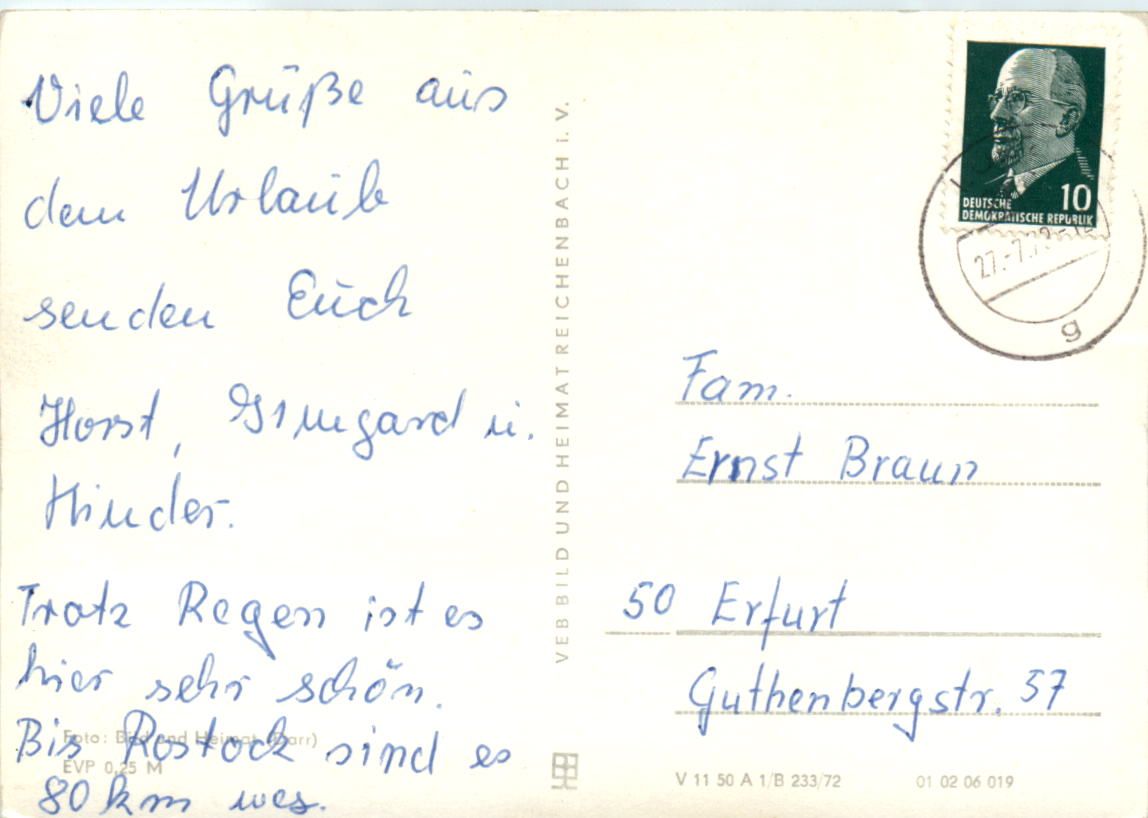 Viele Grüße aus
dem Urlaub
senden Euch
Horst, Irmgard u.
Kinder.
Trotz Regen ist es
hier sehr schön.
Bis Rostock sind es
80 km
Foto: Bild und Heimat (Darr)
EVP 0,25 M
VEB BILD UND HEIMAT REICHENBACH i. V.
DEUTSCHE
DEMOKRATISCHE REPUBLIK
10
27.-7.7
g
Fam.
Ernst Braun
50 Erfurt
Guthenbergstr. 37
V 11 50 A 1/B 233/72
01 02 06 019